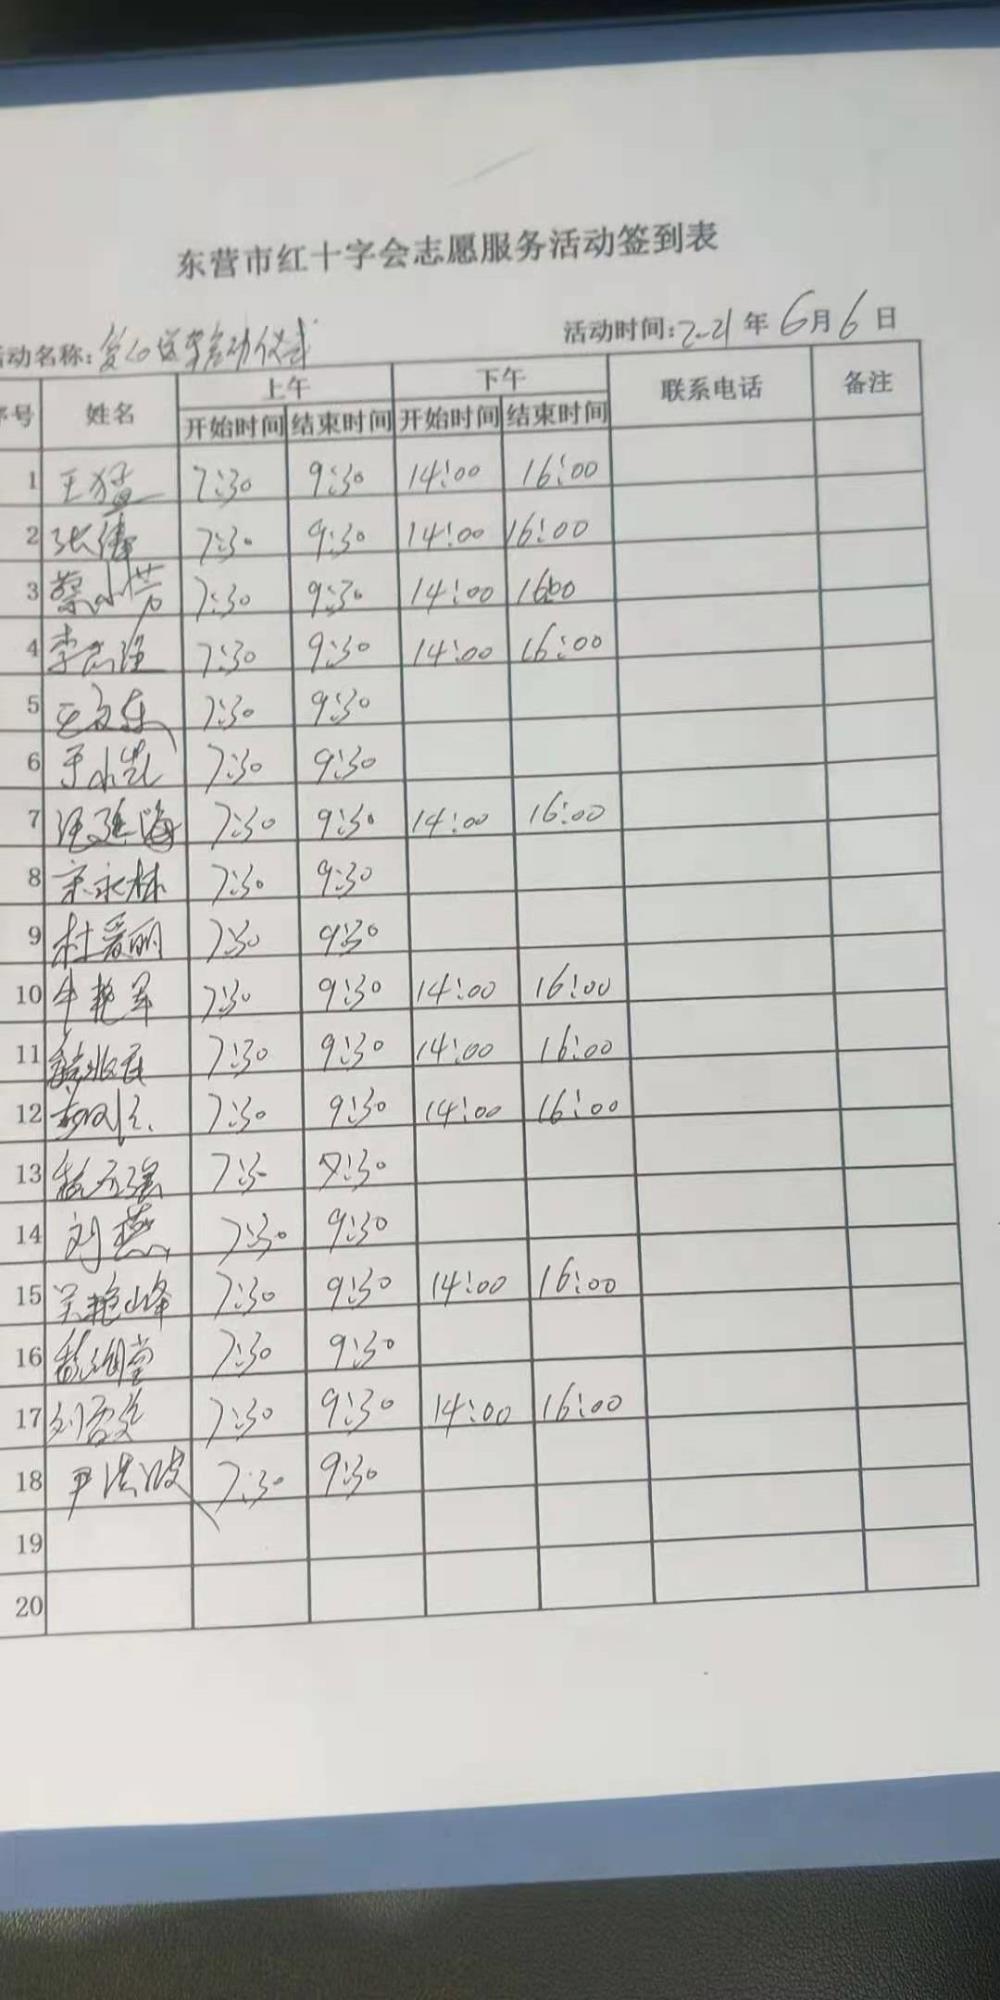 东营市红十字会志愿服务活动签到表
动名称: 爱心送考启动仪式 活动时间: 2021年6月6日
号 姓名 上午 下午 联系电话 备注
开始时间 结束时间 开始时间 结束时间
1 王猛 7:30 9:30 14:00 16:00
2 张伟 7:30 9:30 14:00 16:00
3 蔡小芳 7:30 9:30 14:00 16:00
4 李志强 7:30 9:30 14:00 16:00
5 王文东 7:30 9:30
6 7:30 9:30
7 汪延海 7:30 9:30 14:00 16:00
8 宋永林 7:30 9:30
9 杜爱丽 7:30 9:30
10 牛艳军 7:30 9:30 14:00 16:00
11 7:30 9:30 14:00 16:00
12 7:30 9:30 14:00 16:00
13 7:30 9:30
14 刘燕 7:30 9:30
15 吴艳峰 7:30 9:30 14:00 16:00
16 7:30 9:30
17 7:30 9:30 14:00 16:00
18 尹洪波 7:30 9:30
19
20